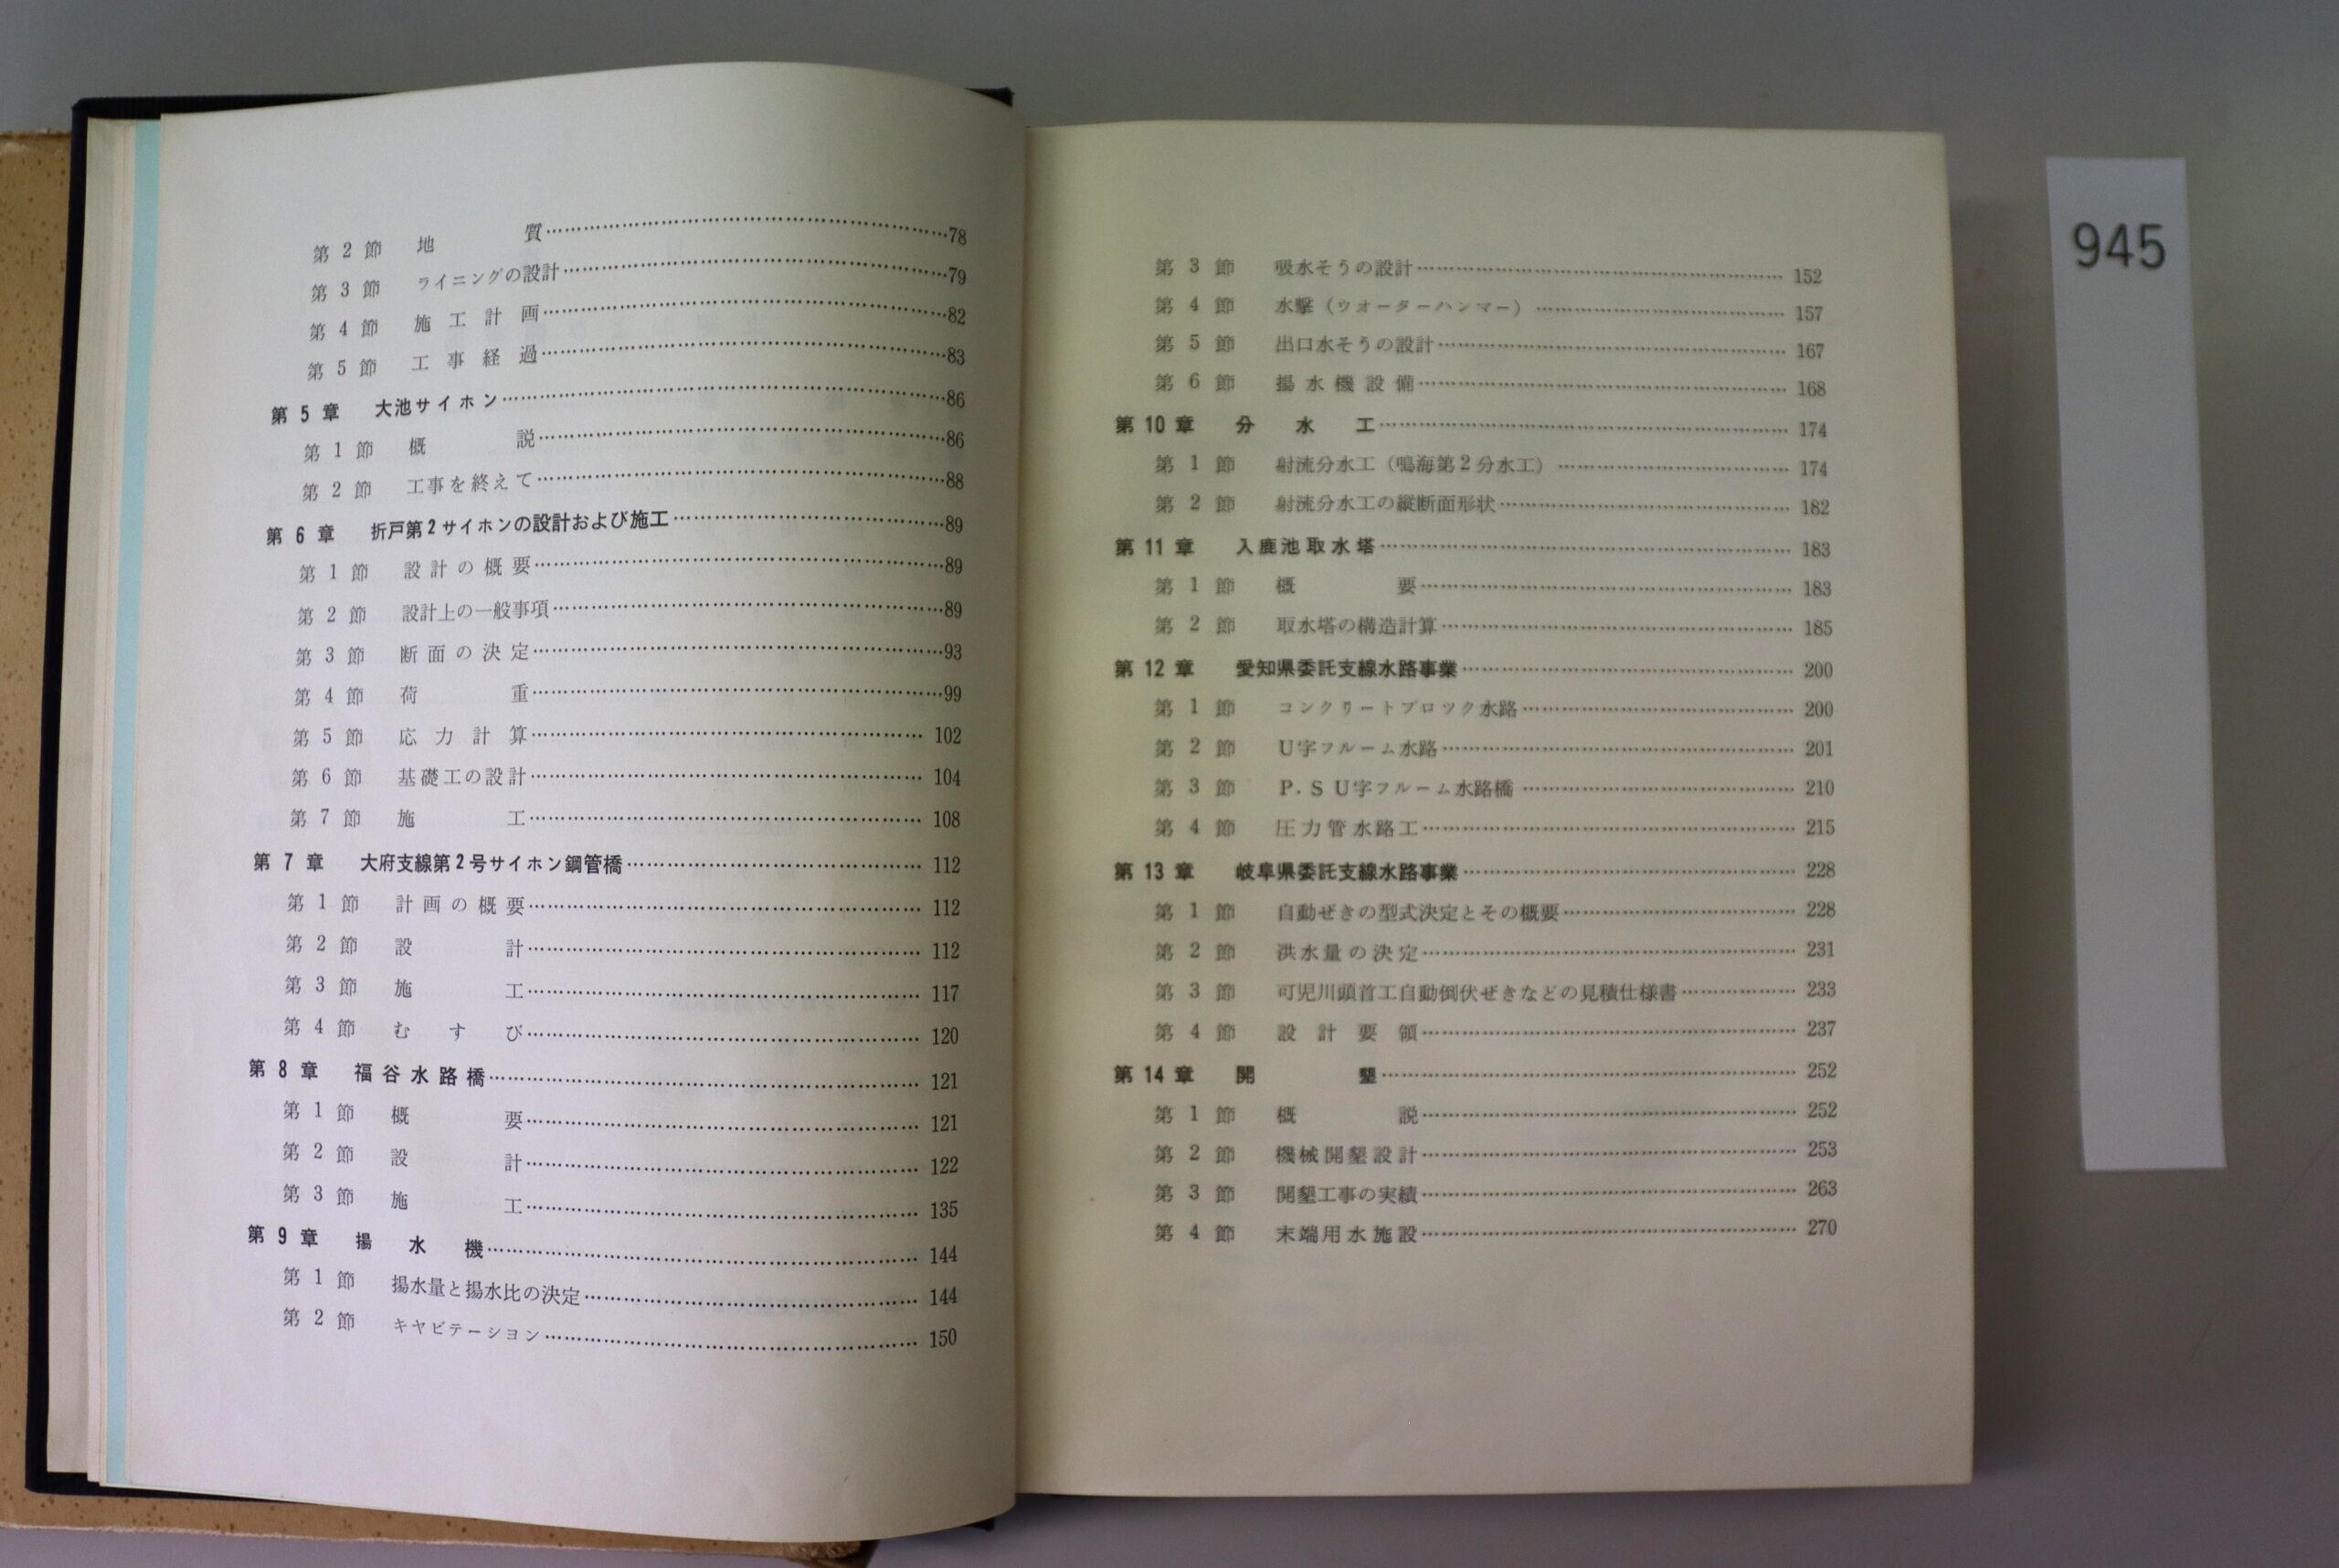 第2節 地質……78
第3節 ライニングの設計……79
第4節 施工計画……82
第5節 工事経過……83
第5章 大池サイホン……86
第1節 概説……86
第2節 工事を終えて……88
第6章 折戸第2サイホンの設計および施工……89
第1節 設計の概要……89
第2節 設計上の一般事項……89
第3節 断面の決定……93
第4節 荷重……99
第5節 応力計算……102
第6節 基礎工の設計……104
第7節 施工……108
第7章 大府支線第2号サイホン鋼管橋……112
第1節 計画の概要……112
第2節 設計……112
第3節 施工……117
第4節 むすび……120
第8章 福谷水路橋……121
第1節 概要……121
第2節 設計……122
第3節 施工……135
第9章 揚水機……144
第1節 揚水量と揚水比の決定……144
第2節 キヤビテーション……150
第3節 吸水そうの設計……152
第4節 水撃(ウオーターハンマー)……157
第5節 出口水そうの設計……167
第6節 揚水機設備……168
第10章 分水工……174
第1節 射流分水工(鳴海第2分水工)……174
第2節 射流分水工の縦断面形状……182
第11章 入鹿池取水塔……183
第1節 概要……183
第2節 取水塔の構造計算……185
第12章 愛知県委託支線水路事業……200
第1節 コンクリートブロツク水路……200
第2節 U字フルーム水路……201
第3節 P.S U字フルーム水路橋……210
第4節 圧力管水路工……215
第13章 岐阜県委託支線水路事業……228
第1節 自動ぜきの型式決定とその概要……228
第2節 洪水量の決定……231
第3節 可児川頭首工自動倒伏ぜきなどの見積仕様書……233
第4節 設計要領……237
第14章 開墾……252
第1節 概説……252
第2節 機械開墾設計……253
第3節 開墾工事の実績……263
第4節 末端用水施設……270
945